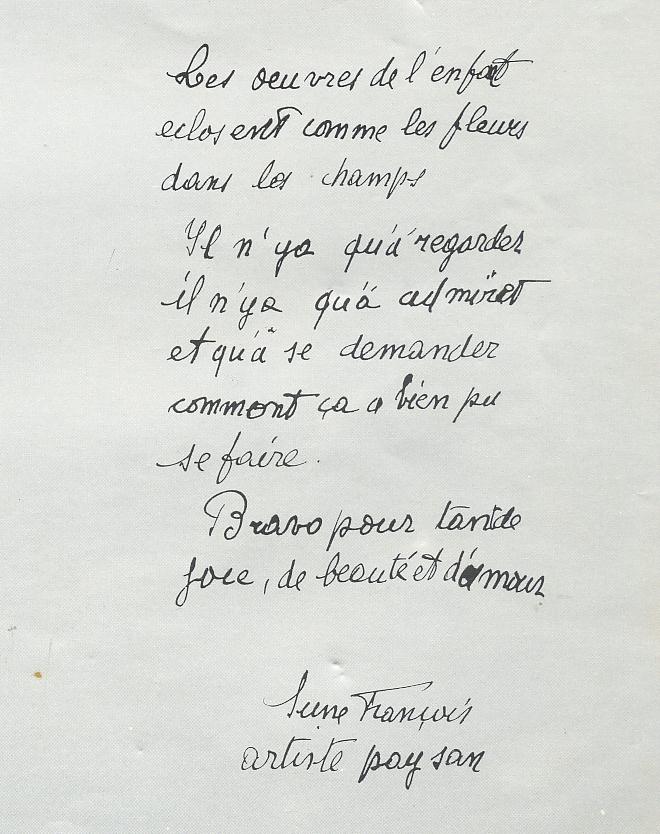 Les oeuvres de l'enfant
eclosent comme les fleurs
dans les champs
Il n'ya qu'à regarder
il n'ya qu'à admirer
et qu'à se demander
comment ça a bien pu
se faire.
Bravo pour tant de
joie, de beauté et d'amour
François
artiste paysan